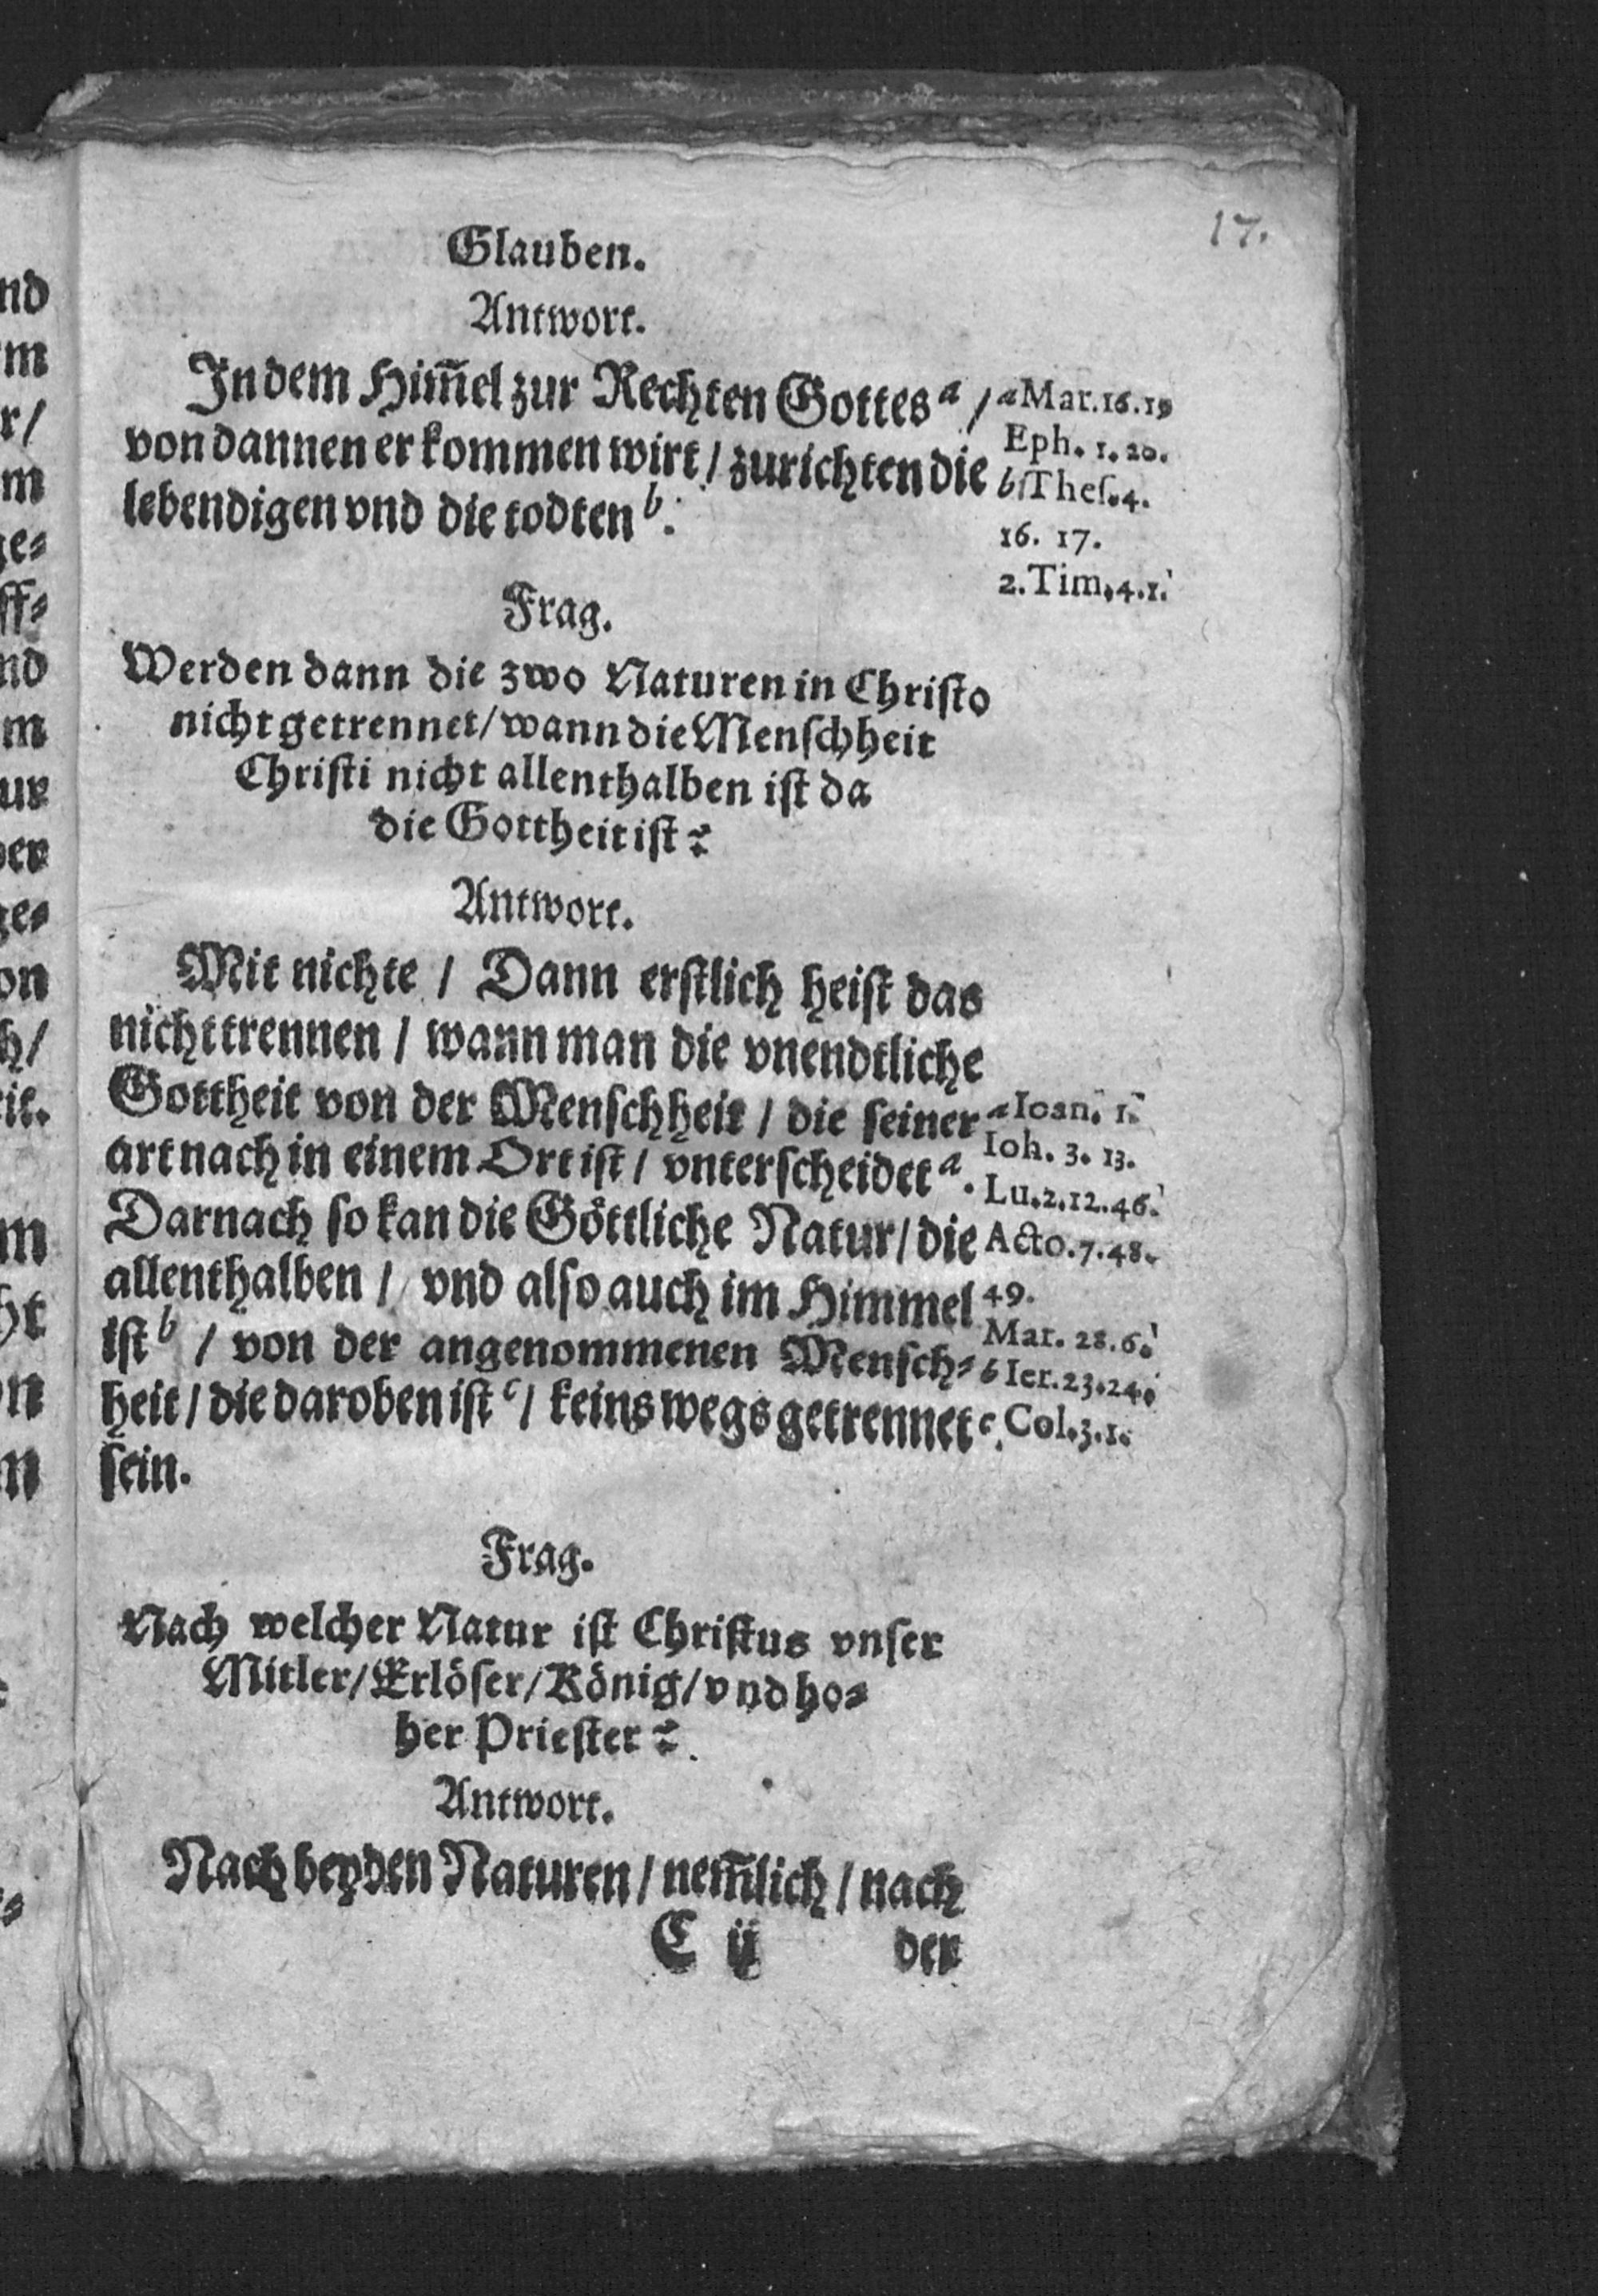 17.
Glauben.
Antwort.
In dem Him̃el zur Rechten Gottes a /
von dannen er kommen wirt / zurichten die
lebendigen vnd die todten b.
a Mar. 16. 19
Eph. 1. 20.
b 1 Thes. 4.
16. 17.
2. Tim. 4. 1.
Frag.
Werden dann die zwo Naturen in Christo
nicht getrennet / wann die Menschheit
Christi nicht allenthalben ist da
die Gottheit ist?
Antwort.
Mit nichte / Dann erstlich heist das
nicht trennen / wann man die vnendtliche
Gottheit von der Menschheit / die seiner
art nach in einem Ort ist / vnterscheidet a.
Darnach so kan die Göttliche Natur / die
allenthalben / vnd also auch im Himmel
ist b / von der angenommenen Mensch-
heit / die daroben ist c / keins wegs getrennet
sein.
a Ioan. 1.
Ioh. 3. 13.
Lu. 2. 12. 46.
Acto. 7. 48.
49.
Mar. 28. 6.
b Ier. 23. 24.
c. Col. 3. 1.
Frag.
Nach welcher Natur ist Christus vnser
Mitler / Erlöser / König / vnd ho-
her Priester?
Antwort.
Nach beyden Naturen / nem̃lich / nach
C ij der
nd
m
r/
m
ge-
ff-
nd
m
ur
er
ge-
on
h/
it.
m
ht
n
n